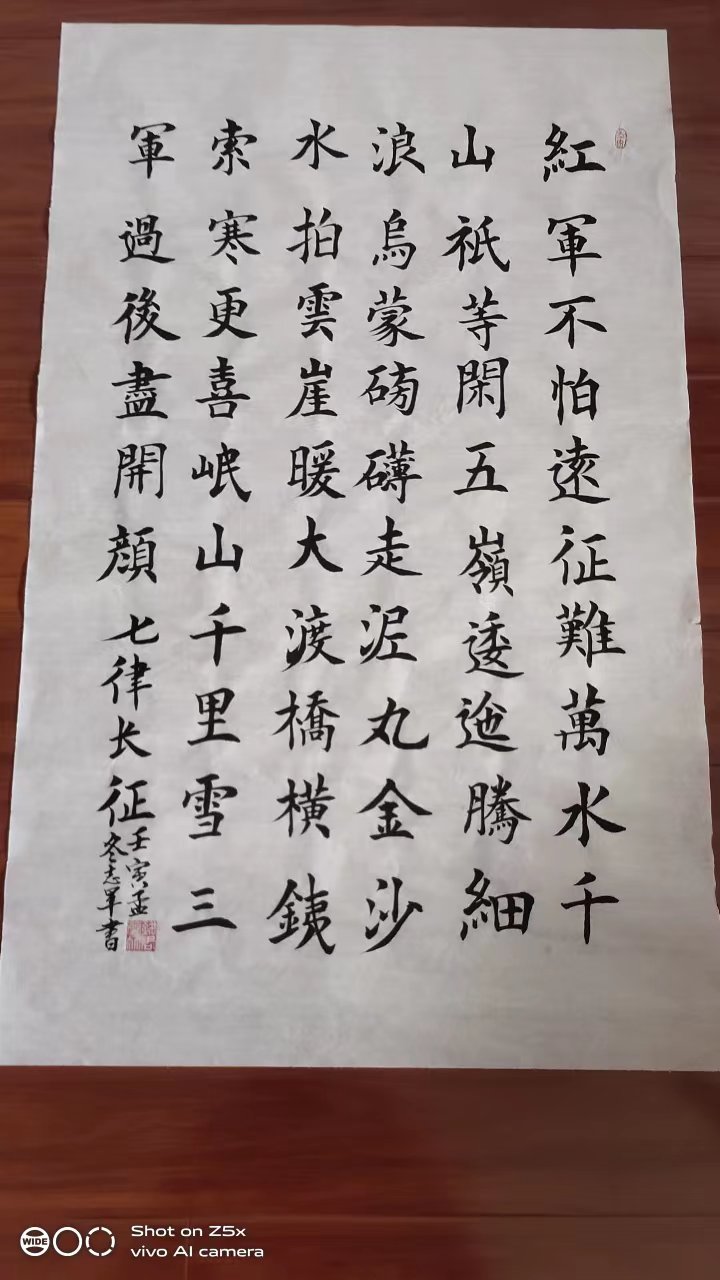 紅軍不怕遠征難萬水千
山祇等閑五嶺逶迤騰細
浪烏蒙磅礴走泥丸金沙
水拍雲崖暖大渡橋橫銕
索寒更喜岷山千里雪三
軍過後盡開顔七律长征
壬寅孟
冬志军書
WIDE
Shot on Z5x
vivo AI camera